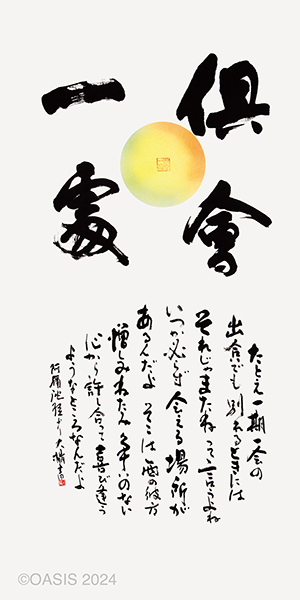 俱會
一處
たとえ一期一会の
出会でも別れるときには
それじゃまたねって言うよね
いつか必らず会える場所が
あるんだよ そこは西の彼方
憎しみねたみ争いのない
心から許し合って喜び逢う
ようなところなんだよ
より 大
©OASIS 2024